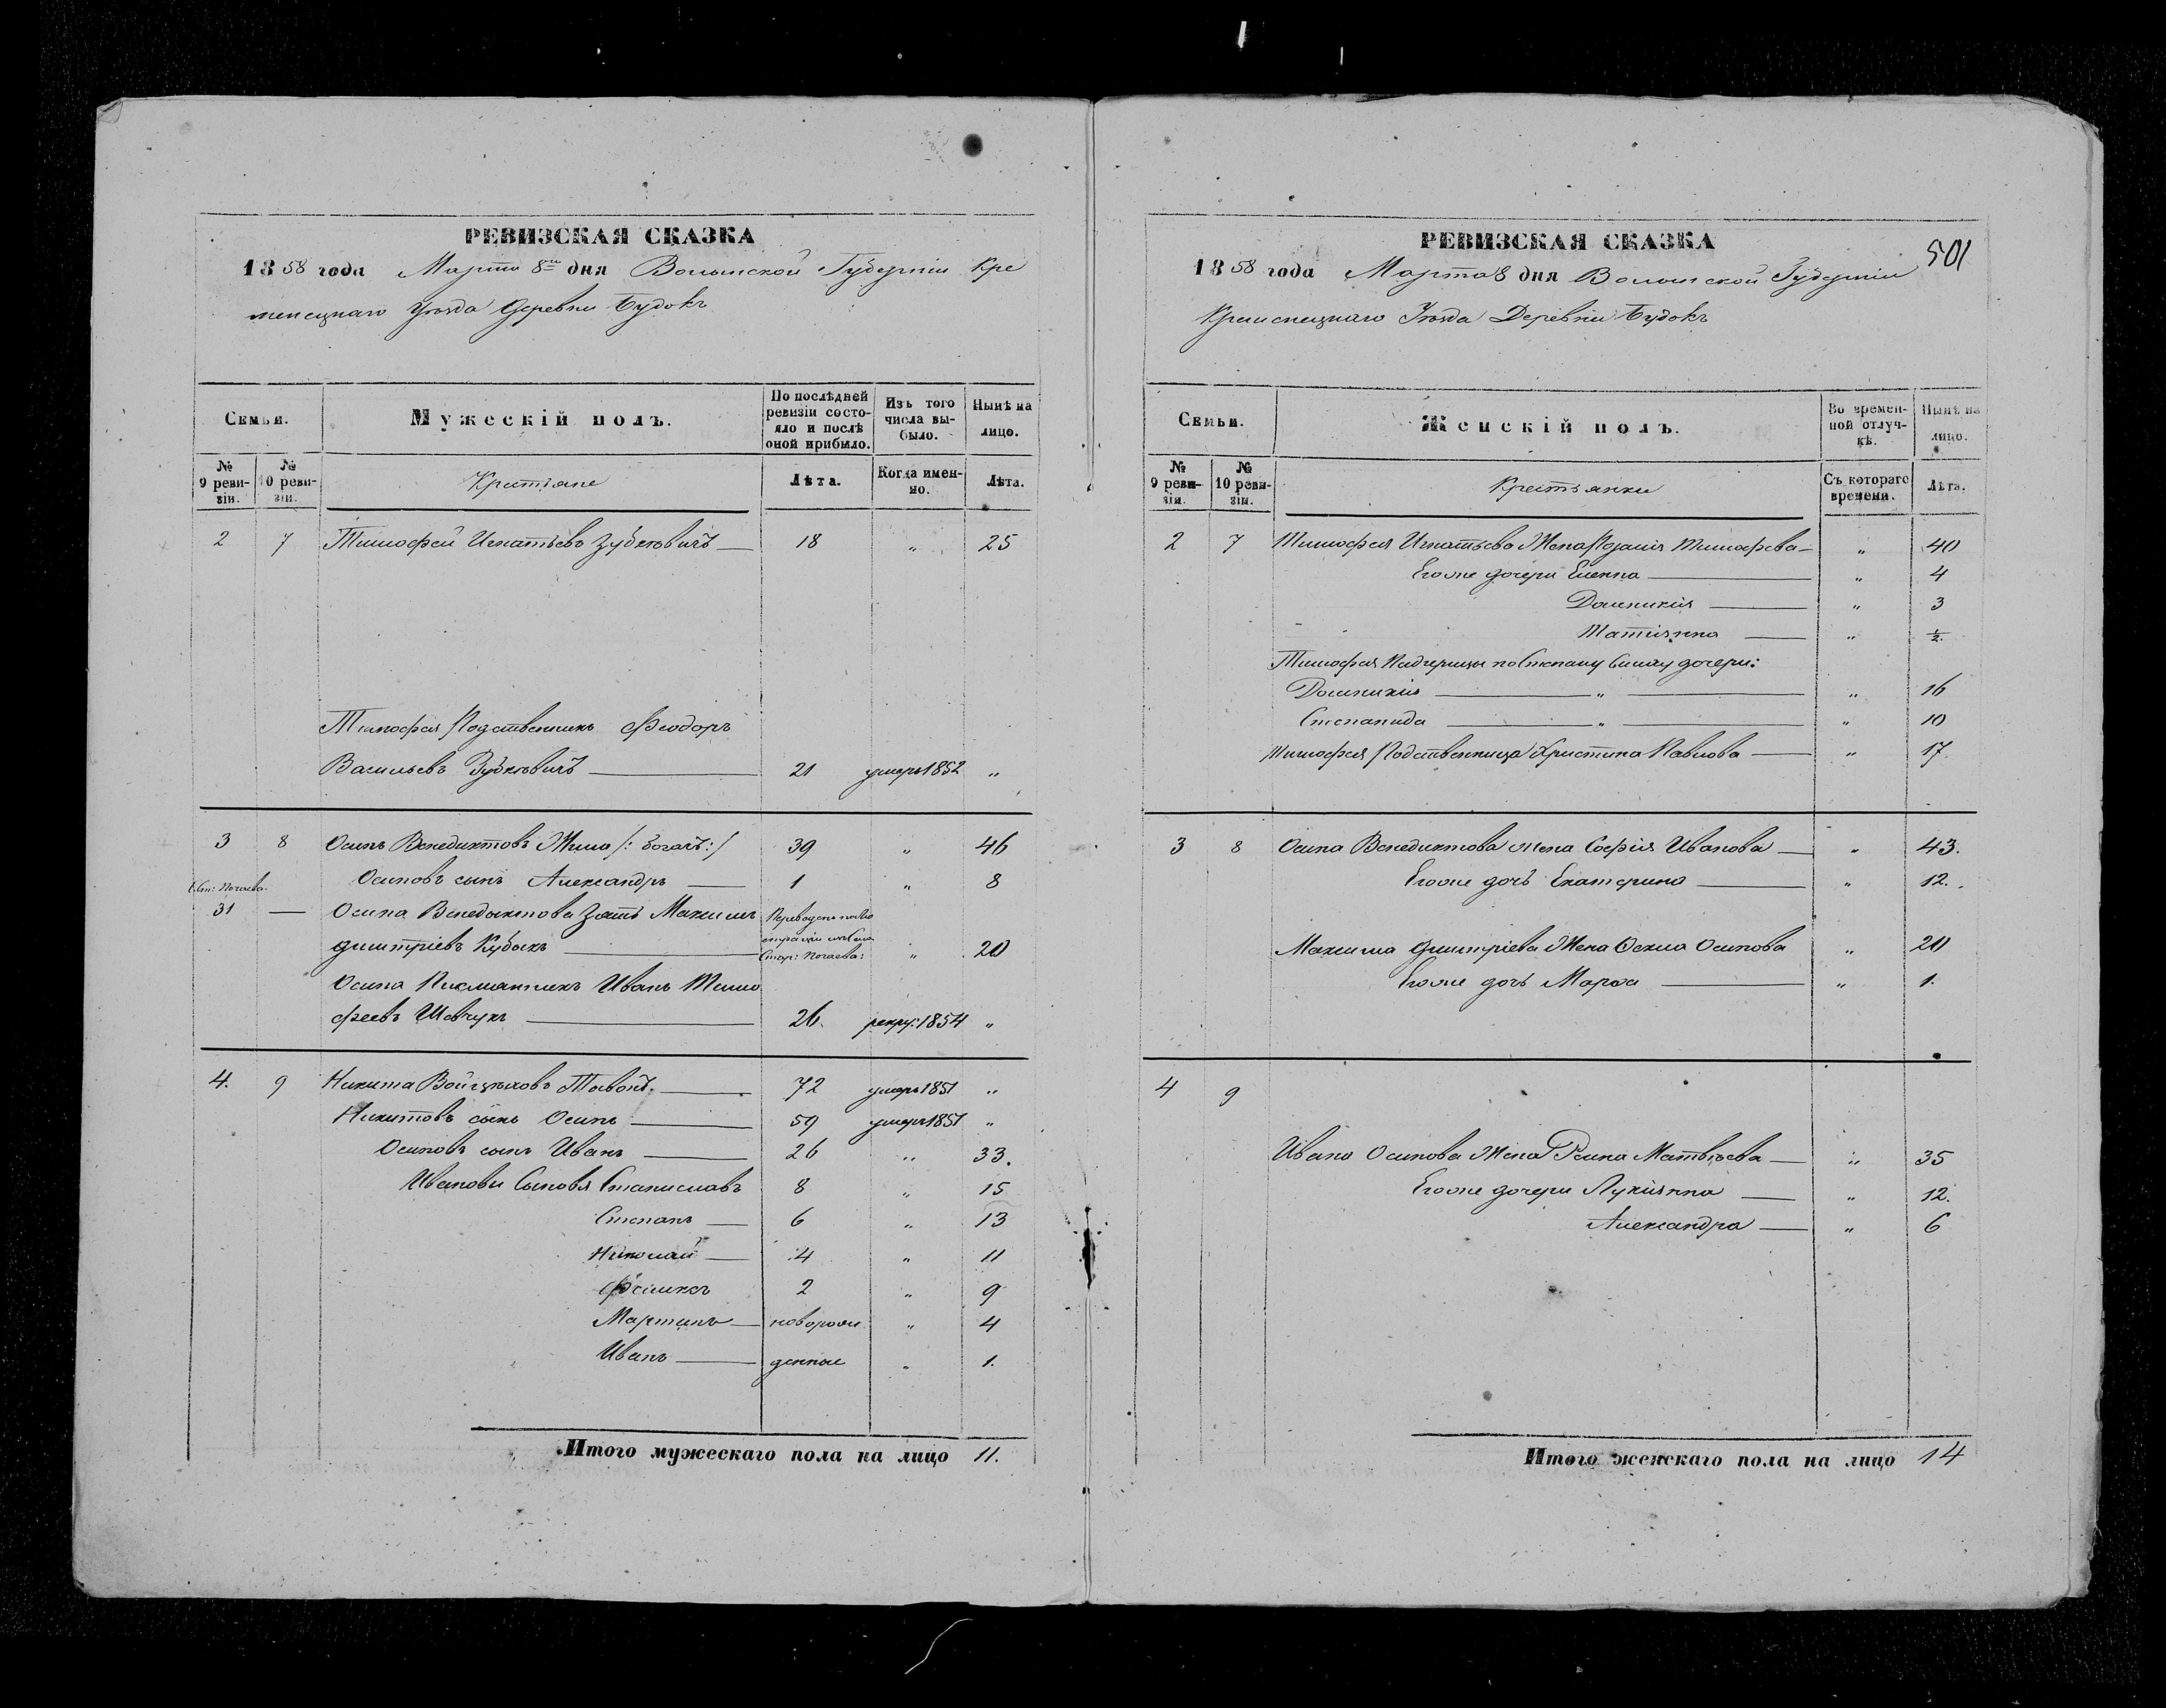 РЕВИЗСКАЯ СКАЗКА
1858 года Марта 8го дня Волынской Губерніи Кре
менецкаго Уѣзда Деревни Будокъ
Семьи.
Мужескій полъ.
По послѣдней ревизіи состояло и послѣ оной прибыло.
Изъ того числа выбыло.
Нынѣ на лицо.
№ 9 ревизіи.
№ 10 ревизіи.
Крестьяне
Лѣта.
Когда именно.
Лѣта.
2 7 Тимофей Игнатьевъ 18 „ 25
Тимофея Родственникъ Феодоръ
Васильевъ 21 умеръ 1852 „
3 8 Осипъ Венедиктовъ 39 „ 46
Осиповъ сынъ Александръ 1 „ 8
31 — Осипа Венедыктова Зять Максимъ
Дмитріевъ Кубыкъ „ 20
Осипа Иванъ Тимо
феевъ Шевчукъ 26. рекру: 1854 „
4. 9 Никита 72 умеръ 1851 „
Никитовъ сынъ Осипъ 59 умеръ 1851 „
Осиповъ сынъ Иванъ 26 „ 33.
Ивановы Сыновья Станиславъ 8 „ 15
Степанъ 6 „ 13
Николай 4 „ 11
2 „ 9
Мартинъ новорож „ 4
Иванъ денные „ 1.
Итого мужескаго пола на лицо 11.
РЕВИЗСКАЯ СКАЗКА
501
1858 года Марта 8 дня Волынской Губерніи
Кременецкаго Уѣзда Деревни Будокъ
Семьи.
Женскій полъ.
Во временной отлучкѣ.
Нынѣ на лицо.
№ 9 ревизіи.
№ 10 ревизіи.
Крестьянки
Съ котораго времени.
Лѣта.
2 7 Тимофея Игнатьева Жена Тимофева „ 40
Егоже дочери Еленна „ 4
Домникія „ 3
Татіянна „ ½.
Тимофея Падчерицы по Степану дочери:
Домникія „ „ 16
Степанида „ „ 10
Тимофея Родственница Христина Павлова „ 17
3 8 Осипа Венедиктова жена Софія Иванова „ 43.
Егоже дочь Екатерина „ 12.
Максима Дмитріева Жена Осипова „ 20
Егоже дочь Марѳа „ 1.
4 9
Ивана Осипова Жена Матвѣева „ 35
Егоже дочери Лукіянна „ 12.
Александра „ 6
Итого женскаго пола на лицо 14